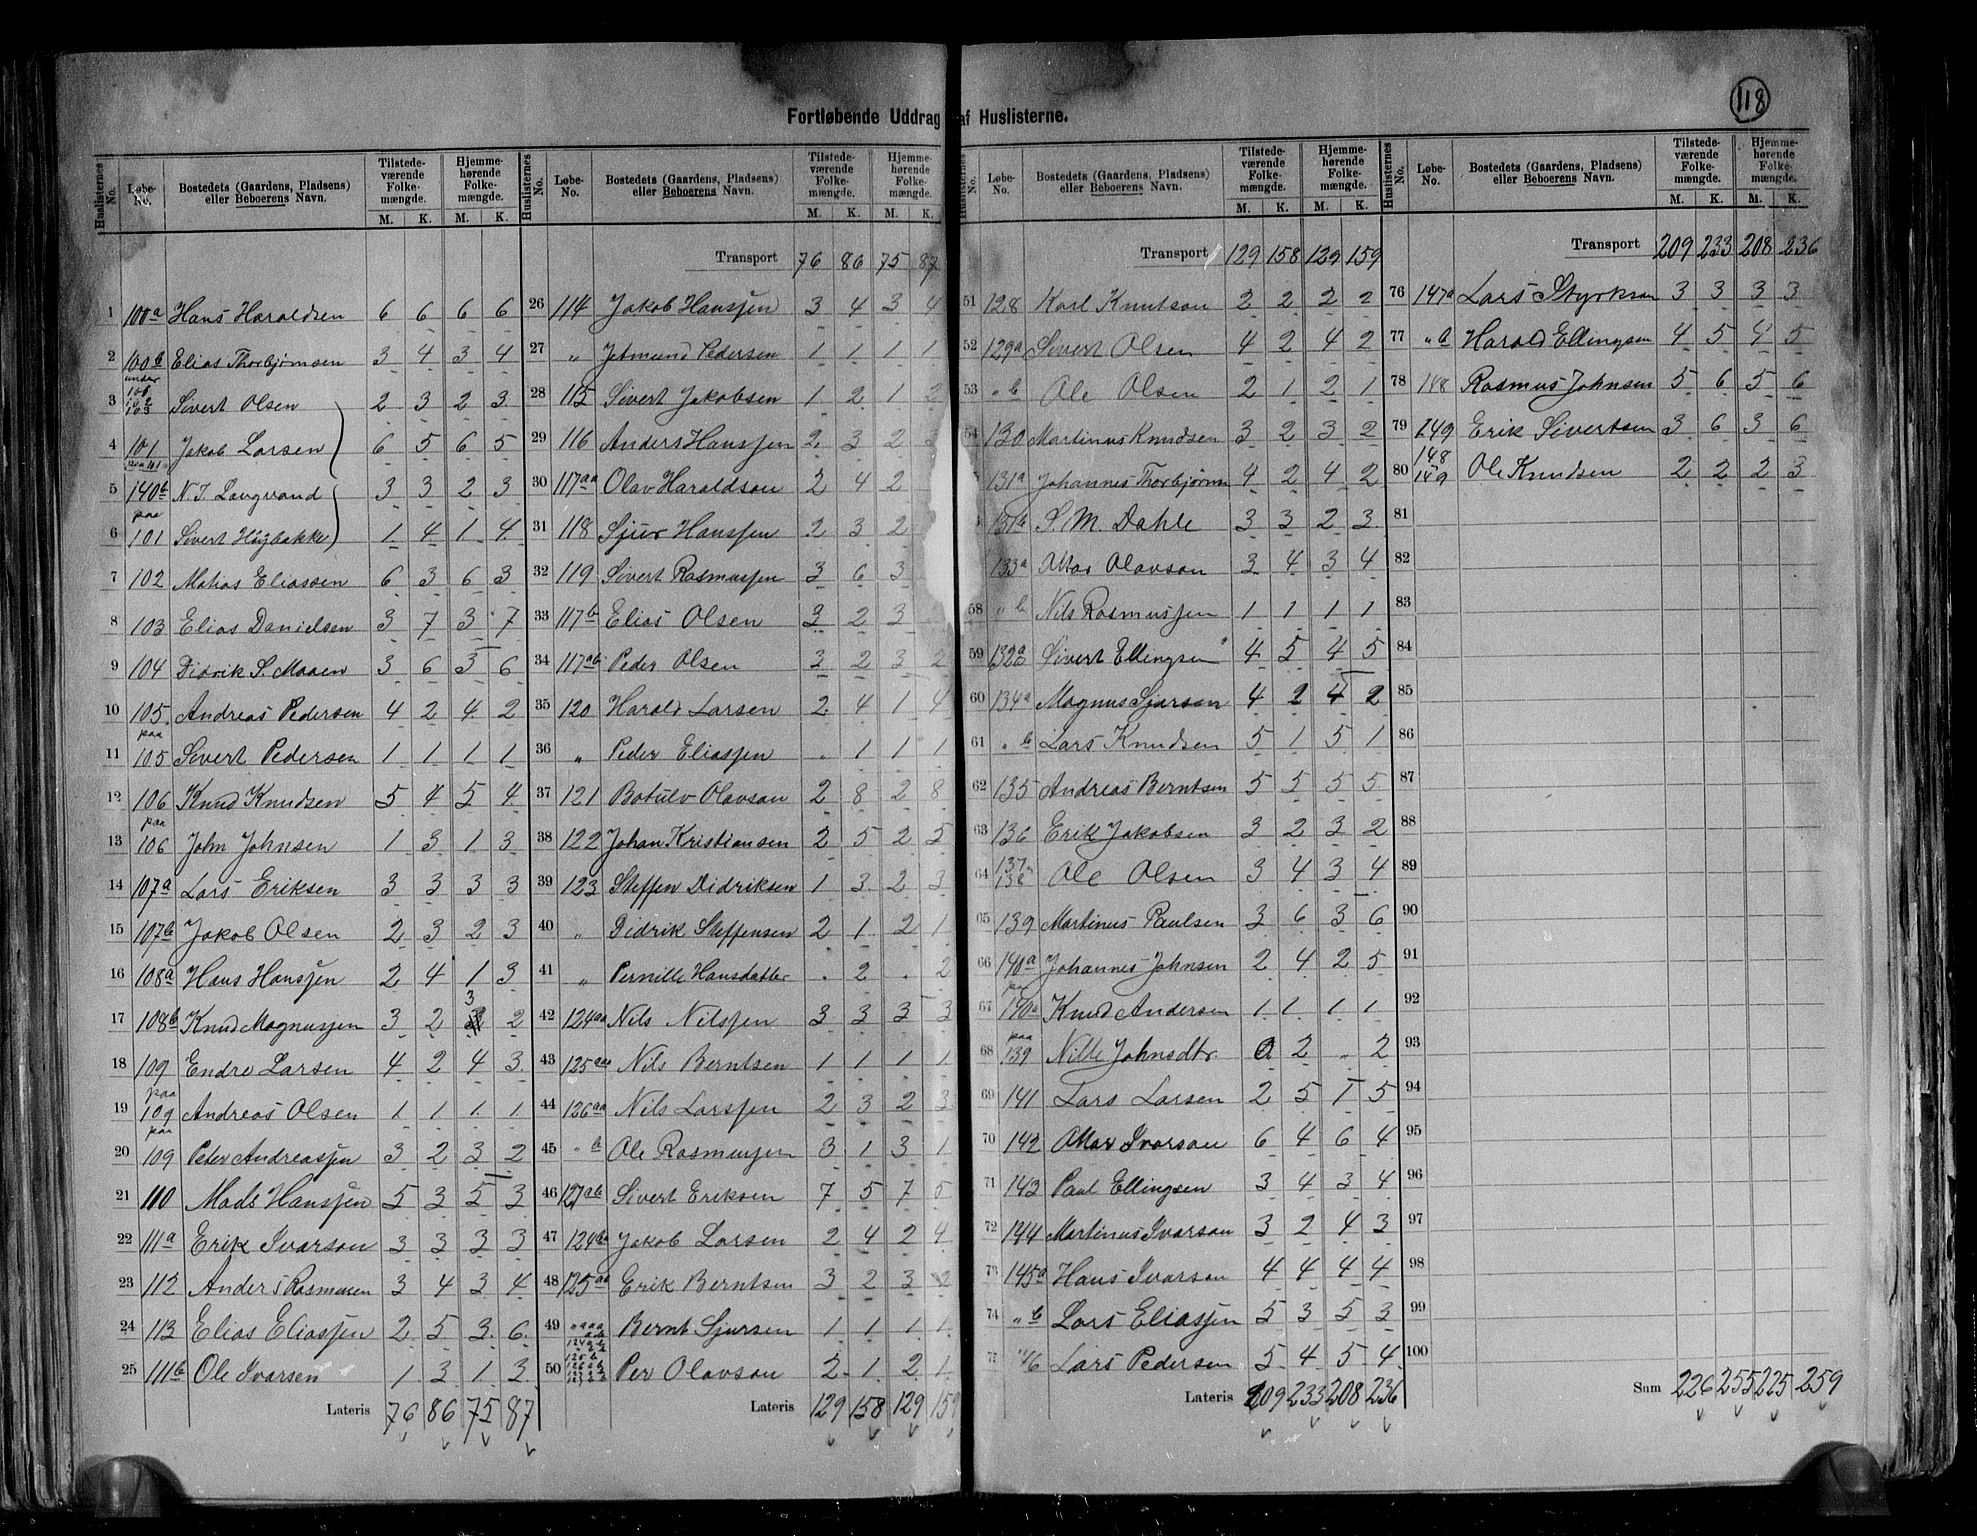 118
Fortløbende Uddrag af Huslisterne.
Huslisternes No. Løbe-No. Bostedets (Gaardens, Pladsens) eller Beboerens Navn. Tilstedeværende Folkemængde. M. K. Hjemmehørende Folkemængde. M. K.
1 100a Hans Haraldsen 6 6 6 6
2 100b Elias Thorbjørnsen 3 4 3 4
3 under 101 102 103 Sivert Olsen 2 3 2 3
4 101 Jakob Larsen 6 5 6 5
5 140b N. T. Langvand 3 3 2 3
6 paa 101 Sivert Högbakke 1 4 1 4
7 102 Matias Eliassen 6 3 6 3
8 103 Elias Danielsen 3 7 3 7
9 104 Didrik S. Maaen 3 6 3 6
10 105 Andreas Pedersen 4 2 4 2
11 paa 105 Sivert Pedersen 1 1 1 1
12 106 Knud Knudsen 5 4 5 4
13 paa 106 John Johnsen 1 3 1 3
14 107a Lars Eriksen 3 3 3 3
15 107b Jakob Olsen 2 3 2 3
16 108a Hans Hanssen 2 4 1 3
17 108b Knud Magnussen 3 2 3 2
18 109 Endre Larsen 4 2 4 3
19 paa 109 Andreas Olsen 1 1 1 1
20 paa 109 Peter Andreassen 3 2 3 2
21 110 Mads Hanssen 5 3 5 3
22 111a Erik Ivarson 3 3 3 3
23 112 Anders Rasmusen 3 4 3 4
24 113 Elias Eliassen 2 5 3 6
25 111b Ole Ivarsen 1 3 1 3
Lateris 76 86 75 87
Huslisternes No. Løbe-No. Bostedets (Gaardens, Pladsens) eller Beboerens Navn. Tilstedeværende Folkemængde. M. K. Hjemmehørende Folkemængde. M. K.
Transport 76 86 75 87
26 114 Jakob Hanssen 3 4 3 4
27 „ Jetmund Pedersen 1 1 1 1
28 115 Sivert Jakobsen 1 2 1 2
29 116 Anders Hanssen 2 3 2 3
30 117aa Olav Haraldson 2 4 2
31 118 Sjur Hanssen 2 3 2
32 119 Sivert Rasmussen 3 6 3
33 117b Elias Olsen 3 2 3
34 117ab Peder Olsen 3 2 3 2
35 120 Harald Larsen 2 4 1 4
36 „ Peder Eliassen . 1 1 1
37 121 Botulv Olavson 2 8 2 8
38 122 Johan Kristiansen 2 5 2 5
39 123 Steffen Didriksen 1 3 2 3
40 „ Didrik Steffensen 2 1 2 1
41 „ Pernille Hansdatter . 2 . 2
42 124aa Nils Nilssen 3 3 3 3
43 125aa Nils Berntsen 1 1 1 1
44 126aa Nils Larssen 2 3 2 3
45 „ b Ole Rasmussen 3 1 3 1
46 127ab Sivert Eriksen 7 5 7 5
47 Jakob Larsen 2 4 2 4
48 125aa Erik Berntsen 3 2 3 2
49 Bernt Sjursen 1 1 1 1
50 Per Olavson 2 1 2 1
Lateris 129 158 129 159
Huslisternes No. Løbe-No. Bostedets (Gaardens, Pladsens) eller Beboerens Navn. Tilstedeværende Folkemængde. M. K. Hjemmehørende Folkemængde. M. K.
Transport 129 158 129 159
51 128 Karl Knutson 2 2 2 2
52 129a Sivert Olsen 4 2 4 2
53 „ b Ole Olsen 2 1 2 1
54 130 Martinus Knudsen 3 2 3 2
131a Johannes Thorbjørns 4 2 4 2
131a S. M. Dahle 3 3 2 3
133a Ottar Olavson 3 4 3 4
58 „ b Nils Rasmussen 1 1 1 1
59 132a Sivert Ellingsen 4 5 4 5
60 134a Magnus Sjursen 4 2 4 2
61 „ b Lars Knudsen 5 1 5 1
62 135 Andreas Berntsen 5 5 5 5
63 136 Erik Jakobsen 3 2 3 2
64 137 138 Ole Olsen 3 4 3 4
65 139 Martinus Paulsen 3 6 3 6
66 140a Johannes Johnsen 2 4 2 5
67 140a Knud Andersen 1 1 1 1
68 paa 139 Nille Johnsdtr 0 2 „ 2
69 141 Lars Larsen 2 5 1 5
70 142 Ottar Ivarson 6 4 6 4
71 143 Paul Ellingsen 3 4 3 4
72 144 Martinus Ivarson 3 2 4 3
73 145a Hans Ivarson 4 4 4 4
74 „ b Lars Eliassen 5 3 5 3
75 146 Lars Pedersen 5 4 5 4
Lateris 209 233 208 236
Huslisternes No. Løbe-No. Bostedets (Gaardens, Pladsens) eller Beboerens Navn. Tilstedeværende Folkemængde. M. K. Hjemmehørende Folkemængde. M. K.
Transport 209 233 208 236
76 147a Lars Styrkson 3 3 3 3
77 „ b Harald Ellingsen 4 5 4 5
78 148 Rasmus Johnsen 5 6 5 6
79 149 Erik Sivertsen 3 6 3 6
80 148 149 Ole Knudsen 2 2 2 3
81
82
83
84
85
86
87
88
89
90
91
92
93
94
95
96
97
98
99
100
Sum 226 255 225 259